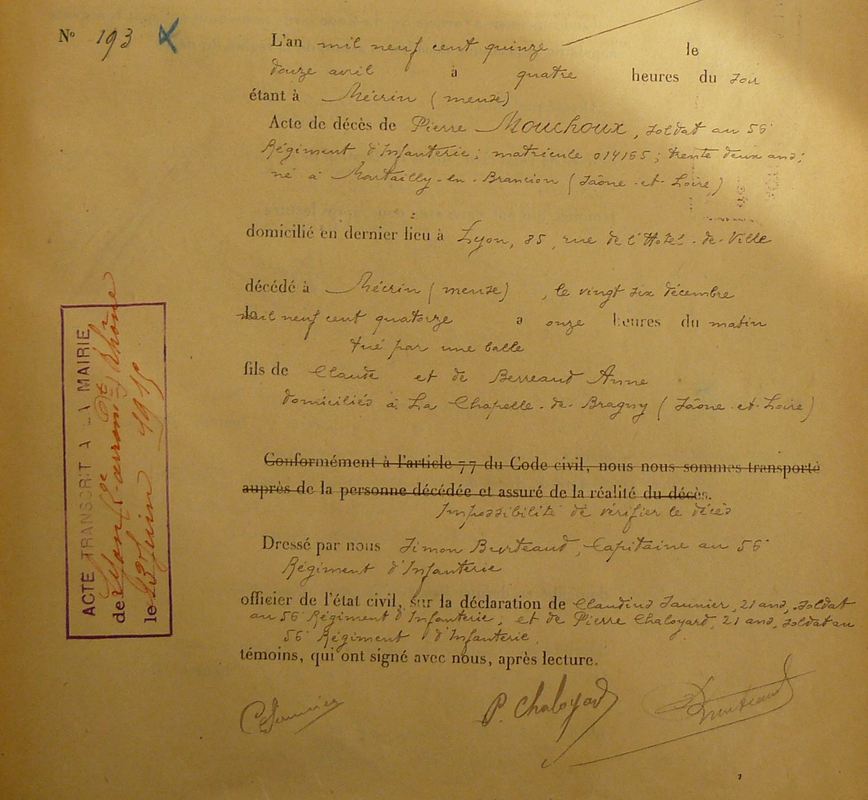 N° 193
L'an mil neuf cent quinze le
douze avril à quatre heures du soir
étant à Mécrin (meuse)
Acte de décès de Pierre Mouchoux, soldat au 56e
Régiment d'Infanterie; matricule 014165; trente deux ans;
né à Martailly-en-Brancion (Saône-et-Loire)
domicilié en dernier lieu à Lyon, 85, rue de l'Hotel-de-Ville
décédé à Mécrin (meuse), le vingt six décembre
mil neuf cent quatorze à onze heures du matin
tué par une balle
fils de Claude et de Berreaud Anne
domiciliés à La Chapelle-de-Bragny (Saône-et-Loire)
Conformément à l'article 77 du Code civil, nous nous sommes transporté
auprès de la personne décédée et assuré de la réalité du décès.
Impossibilité de vérifier le décès
Dressé par nous Simon Burteaud, Capitaine au 56e
Régiment d'Infanterie
officier de l'état civil, sur la déclaration de Claudius Saunier, 21 ans, soldat
au 56e Régiment d'Infanterie, et de Pierre Chaloyard, 21 ans, soldat au
56e Régiment d'Infanterie,
témoins, qui ont signé avec nous, après lecture.
C Saunier P. Chaloyard Burteaud
ACTE TRANSCRIT A LA MAIRIE
de Lyon Rhône
le 23 Juin 1915